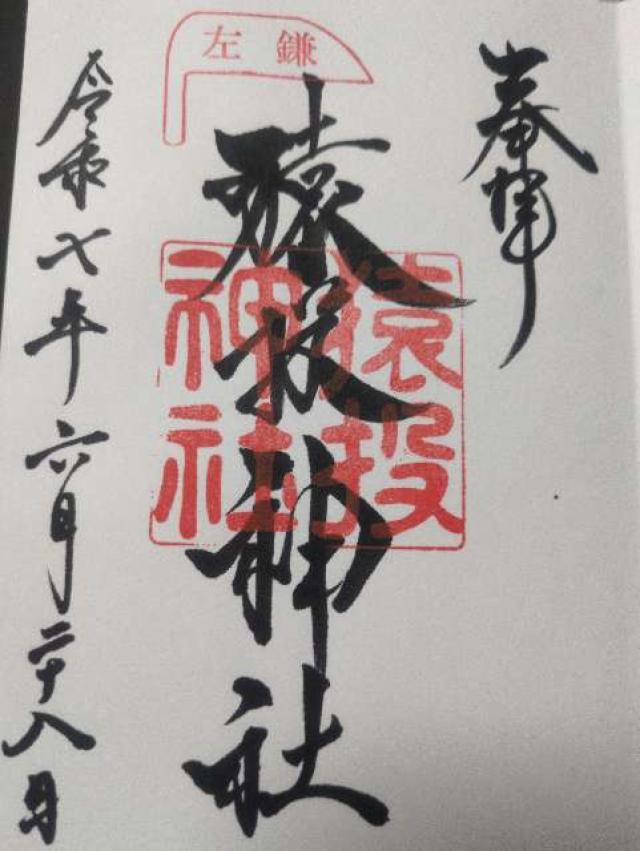 奉拝
左鎌
猿投神社
猿投神社
令和七年六月二十八日